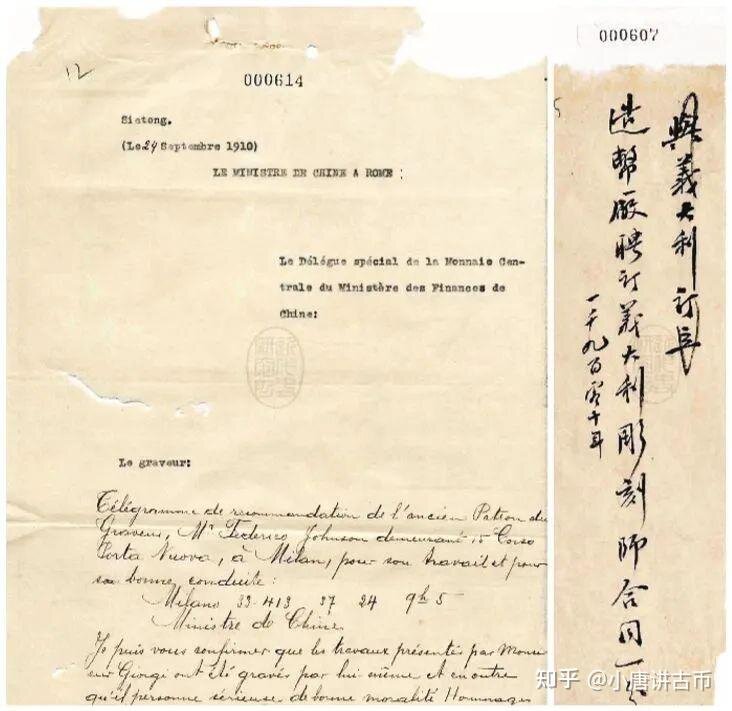 12
000614
Sistong.
(Le 24 Septembre 1910)
LE MINISTRE DE CHINE A ROME :
Le Délégue spécial de la Monnaie Cen-
trale du Ministère des Finances de
Chine:
Le graveur:
Télégramme de recommandation de l'ancien Patron du
Graveur, Mr Federico Johnson demeurant 15 Corso
Porta Nuova, à Milan, pour son travail et pour
sa bonne conduite:
Milano 33-413 37 24 9h 5
Ministre de Chine
Je puis vous confirmer que les travaux présentés par Monsi
eur Giorgi ont été gravés par lui même et en outre
qu'il personne sérieuse de bonne moralité Hommages
000607
與義大利訂立
造幣廠聘訂義大利彫刻師合同一件
一千九百零十年
知乎 @小唐讲古币